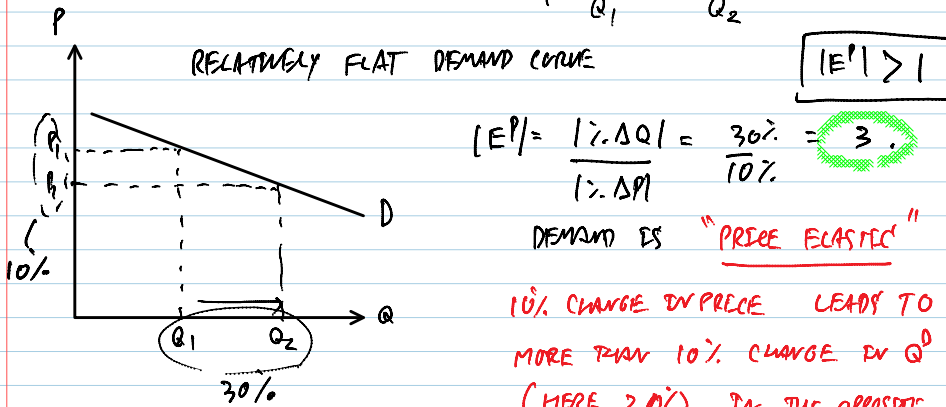 Q1 Q2
P
RELATIVELY FLAT DEMAND CURVE
|E^P| > 1
P1
P2
10%
D
Q
Q1 Q2
30%
|E^P| = |%ΔQ| / |%ΔP| = 30% / 10% = 3.
DEMAND IS "PRICE ELASTIC"
10% CHANGE IN PRICE LEADS TO
MORE THAN 10% CHANGE IN Q^D
(HERE 30%) IN THE OPPOSITE